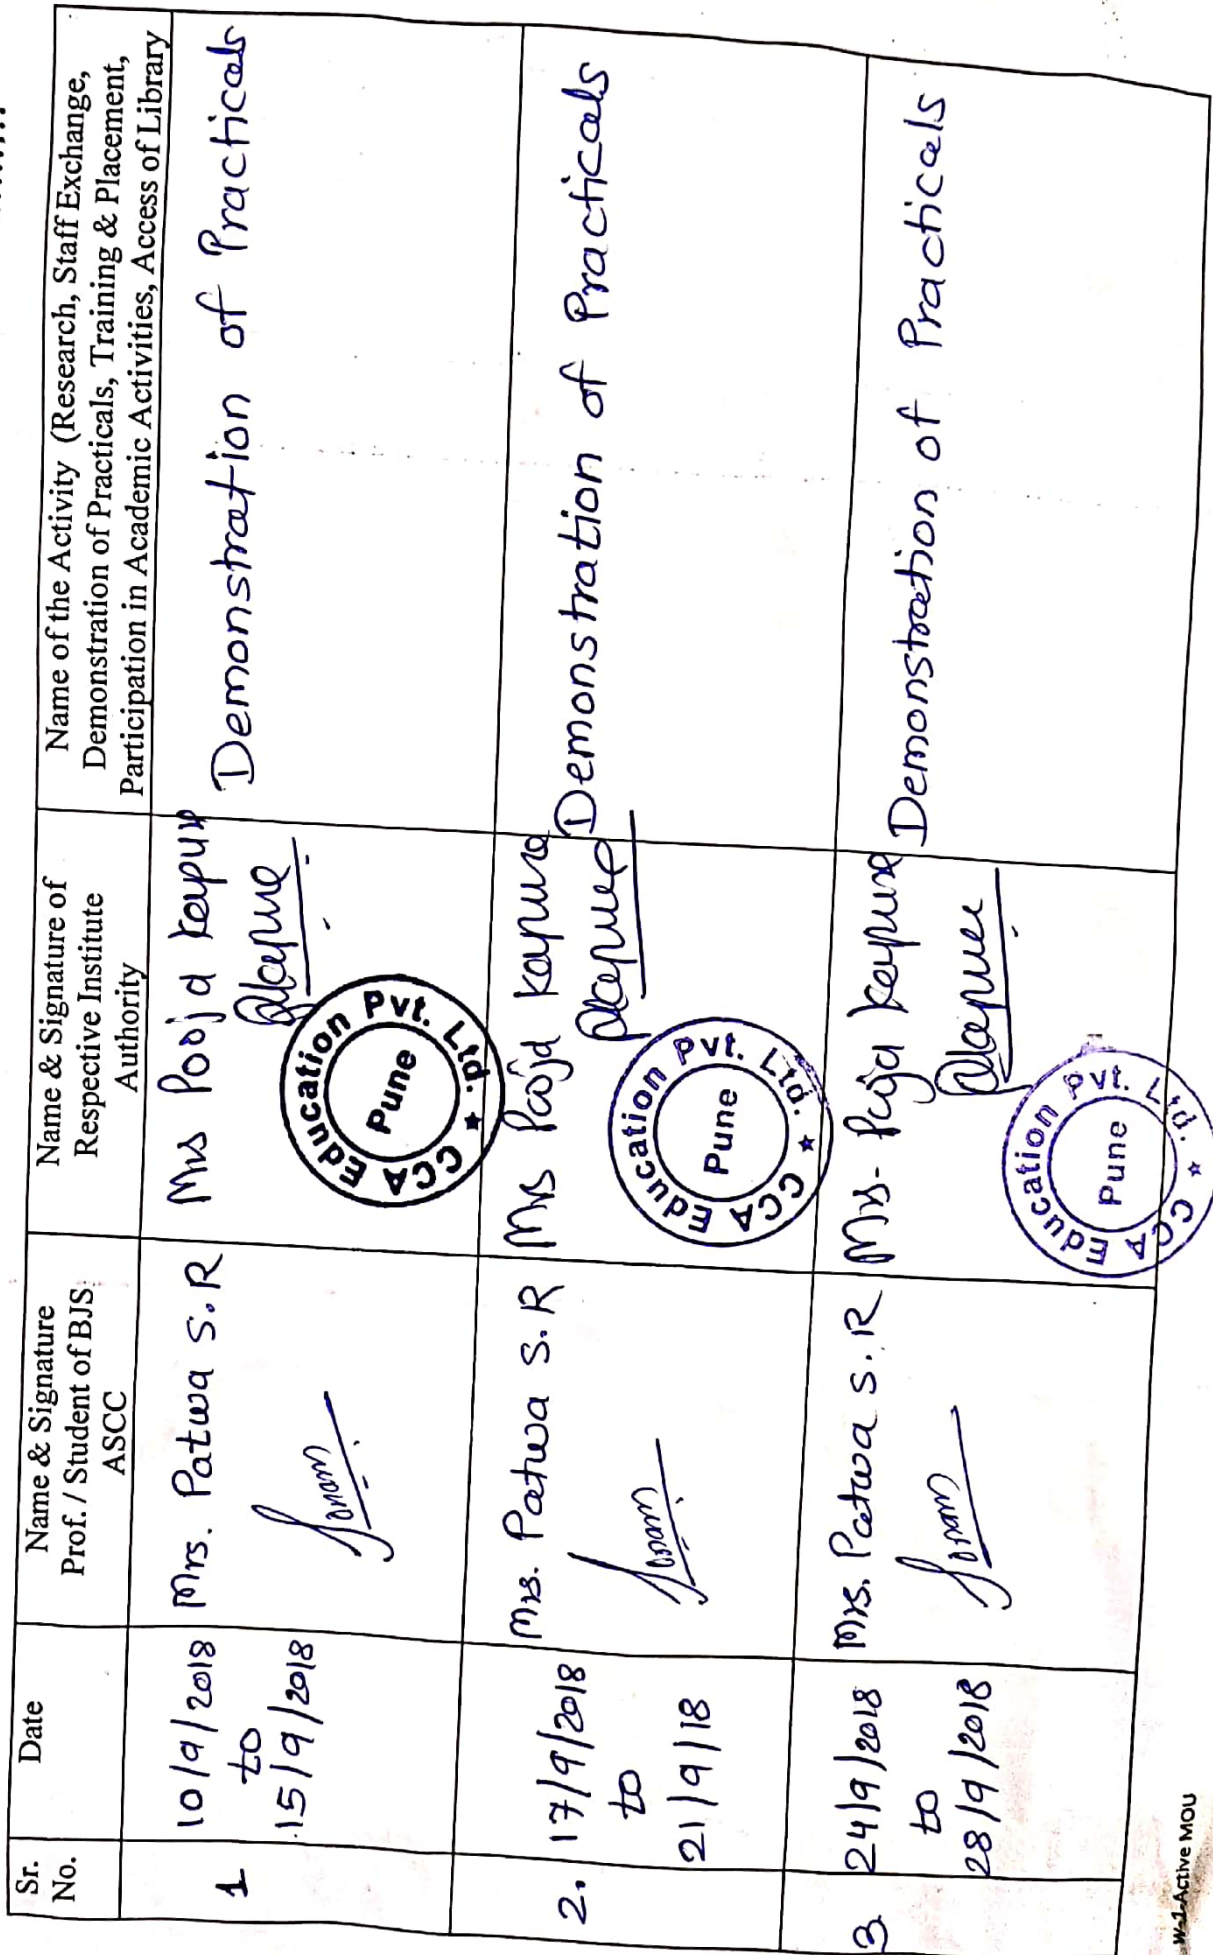 Sr.
No.
Date
Name & Signature
Prof. / Student of BJS
ASCC
Name & Signature of
Respective Institute
Authority
Name of the Activity (Research, Staff Exchange,
Demonstration of Practicals, Training & Placement,
Participation in Academic Activities, Access of Library
1
10/9/2018
to
15/9/2018
Mrs. Patwa S.R
Sonam
Mrs Pooja Kapur
CCA Education Pvt. Ltd. ★
Pune
Demonstration of Practicals
2.
17/9/2018
to
21/9/18
Mrs. Patwa S.R
Sonam
Mrs Pooja Kapure
CCA Education Pvt. Ltd. ★
Pune
Demonstration of Practicals
3
24/9/2018
to
28/9/2018
Mrs. Patwa S.R
Sonam
Mrs. Puja Kapure
CCA Education Pvt. Ltd. ★
Pune
Demonstration of Practicals
W-1-Active MOU